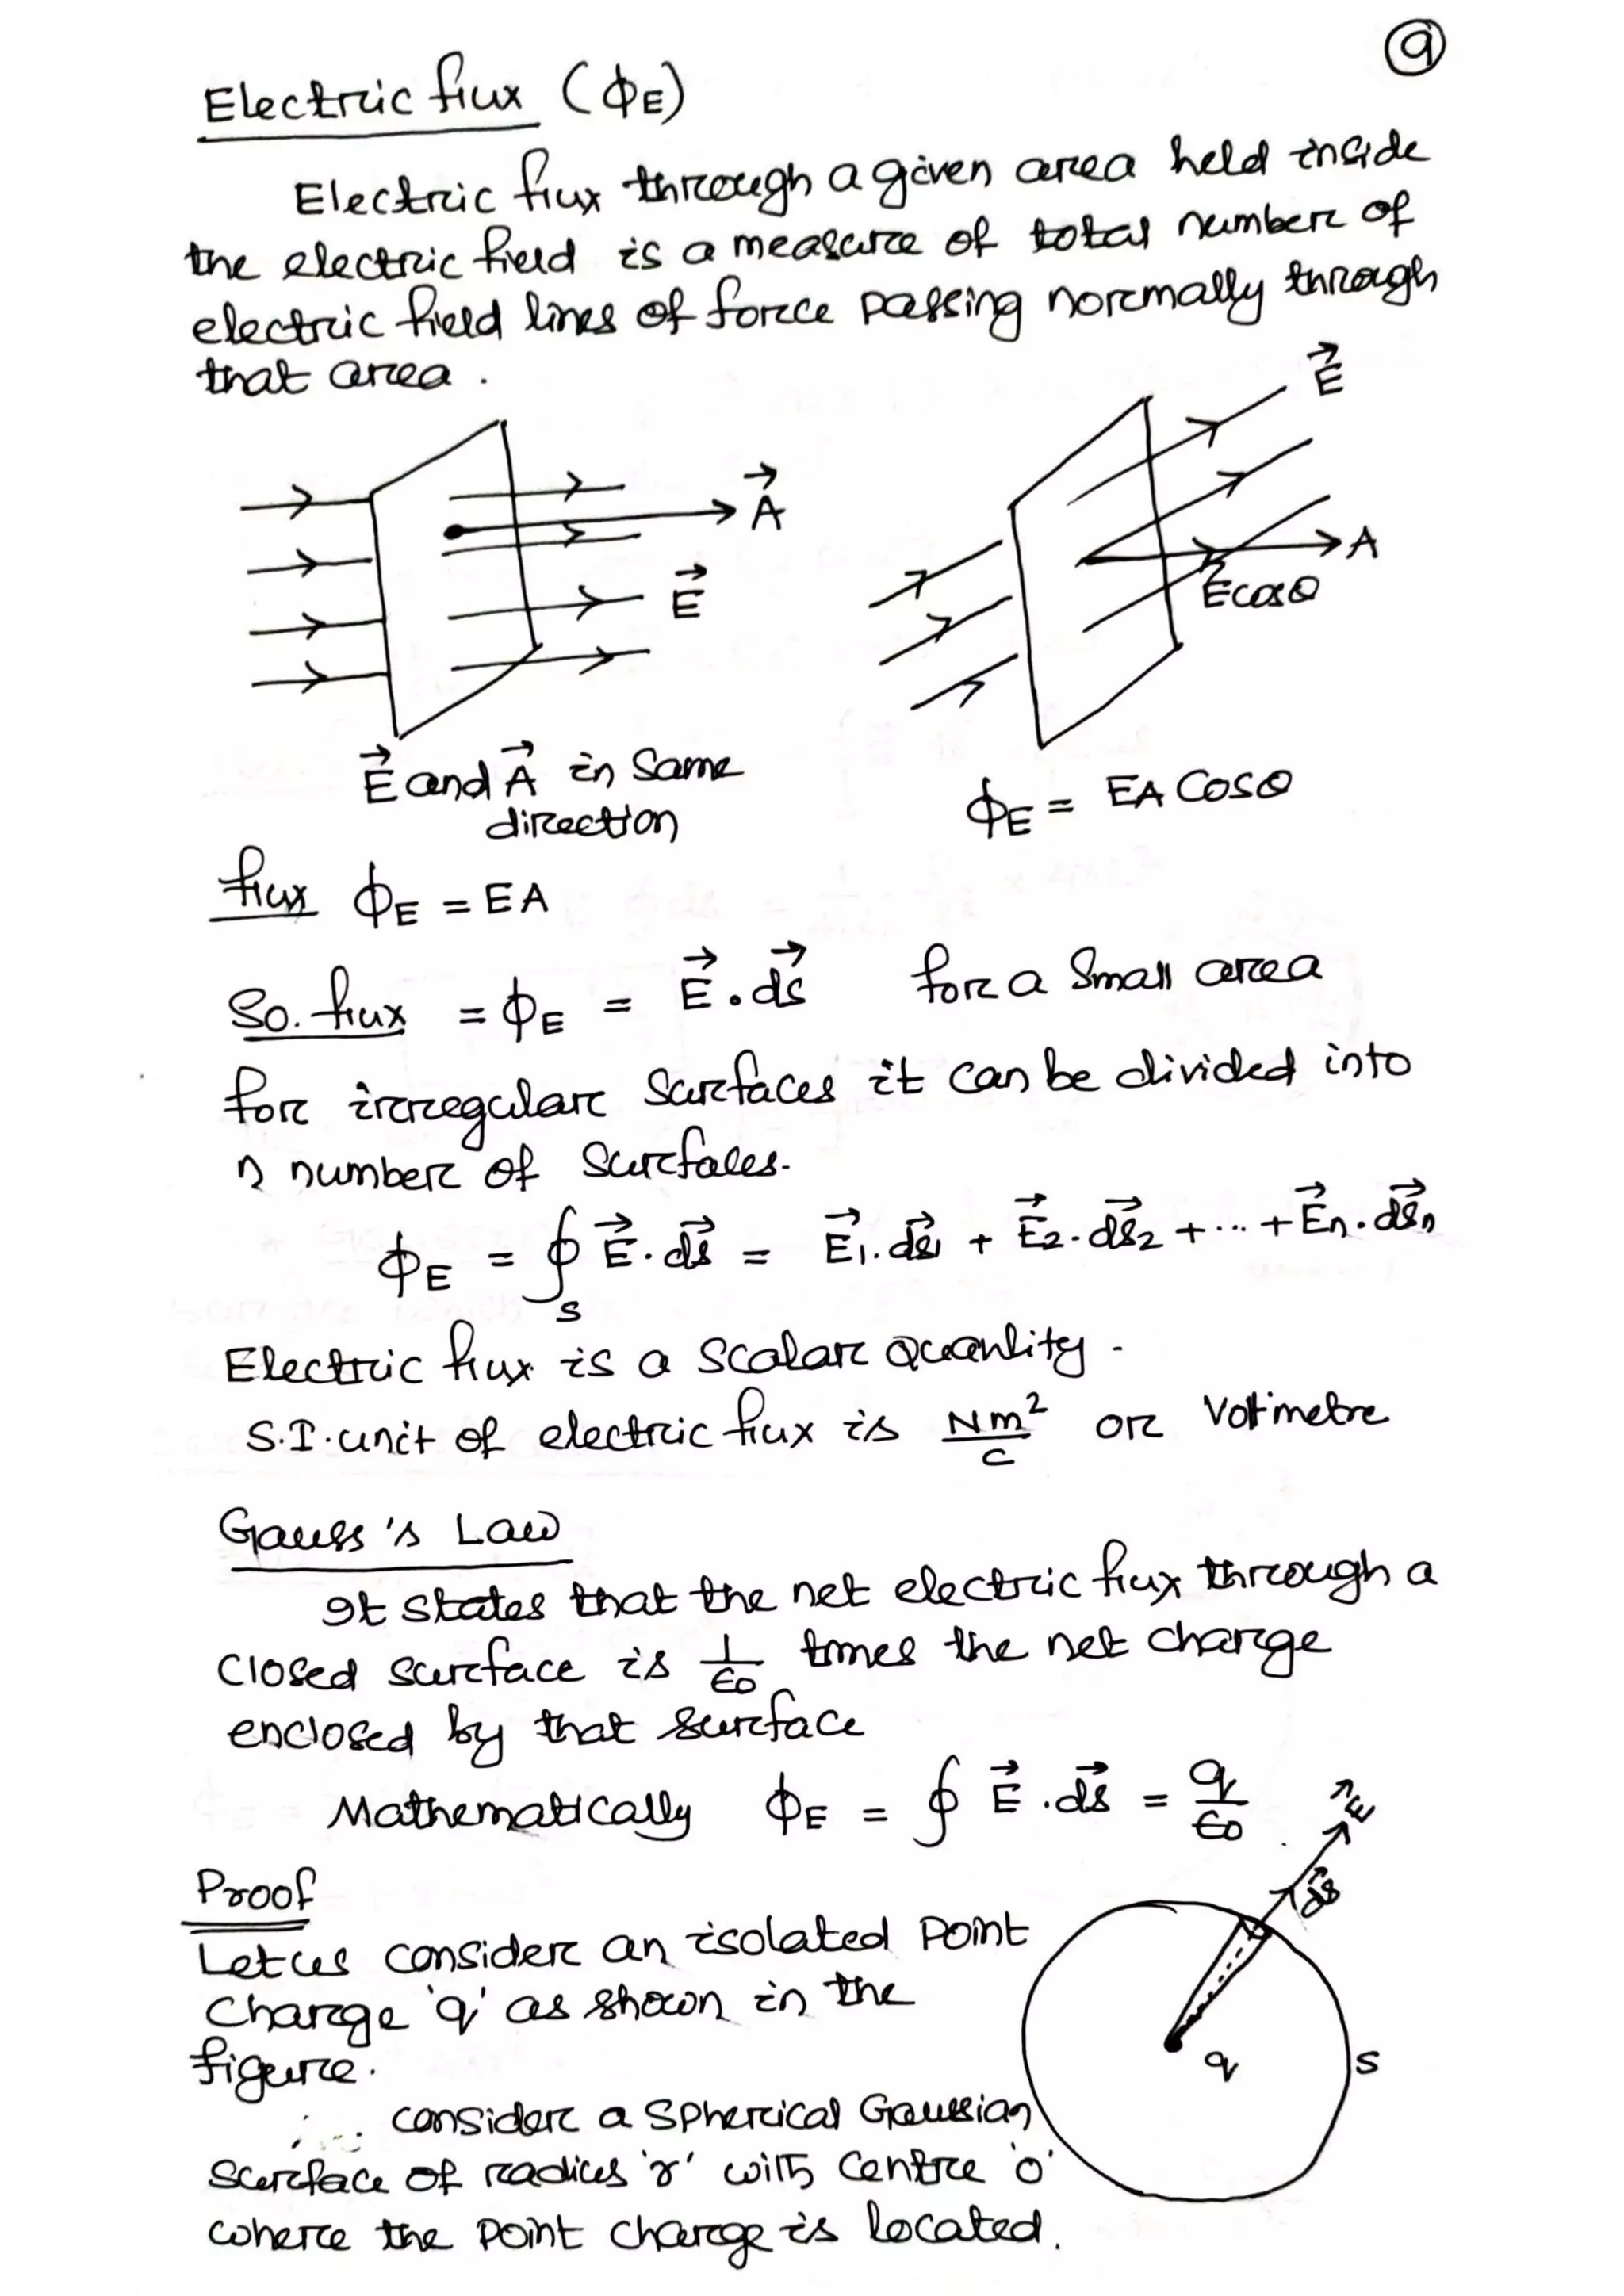 9
Electric flux (ϕE)
Electric flux through a given area held inside
the electric field is a measure of total number of
electric field lines of force passing normally through
that area.
A⃗
E⃗
E⃗ and A⃗ in Same
direction
E⃗
A
Ecosθ
ϕE = EA Cosθ
flux ϕE = EA
So. flux = ϕE = E⃗ . ds⃗ for a Small area
for irregular Surfaces it can be divided into
n number of Surfaces.
ϕE = ∮s E⃗ . ds⃗ = E⃗1 . ds⃗1 + E⃗2 . ds⃗2 + ... + E⃗n . ds⃗n
Electric flux is a scalar quantity.
S.I. unit of electric flux is Nm²/C or Voltmetre
Gauss's Law
It states that the net electric flux through a
closed surface is 1/ϵ0 times the net charge
enclosed by that surface
Mathematically ϕE = ∮ E⃗ . ds⃗ = q/ϵ0
Proof
Let us consider an isolated Point
Charge 'q' as shown in the
figure.
consider a Spherical Gaussian
surface of radius 'r' with Centre 'o'
where the point charge is located.
E⃗
ds⃗
q
S